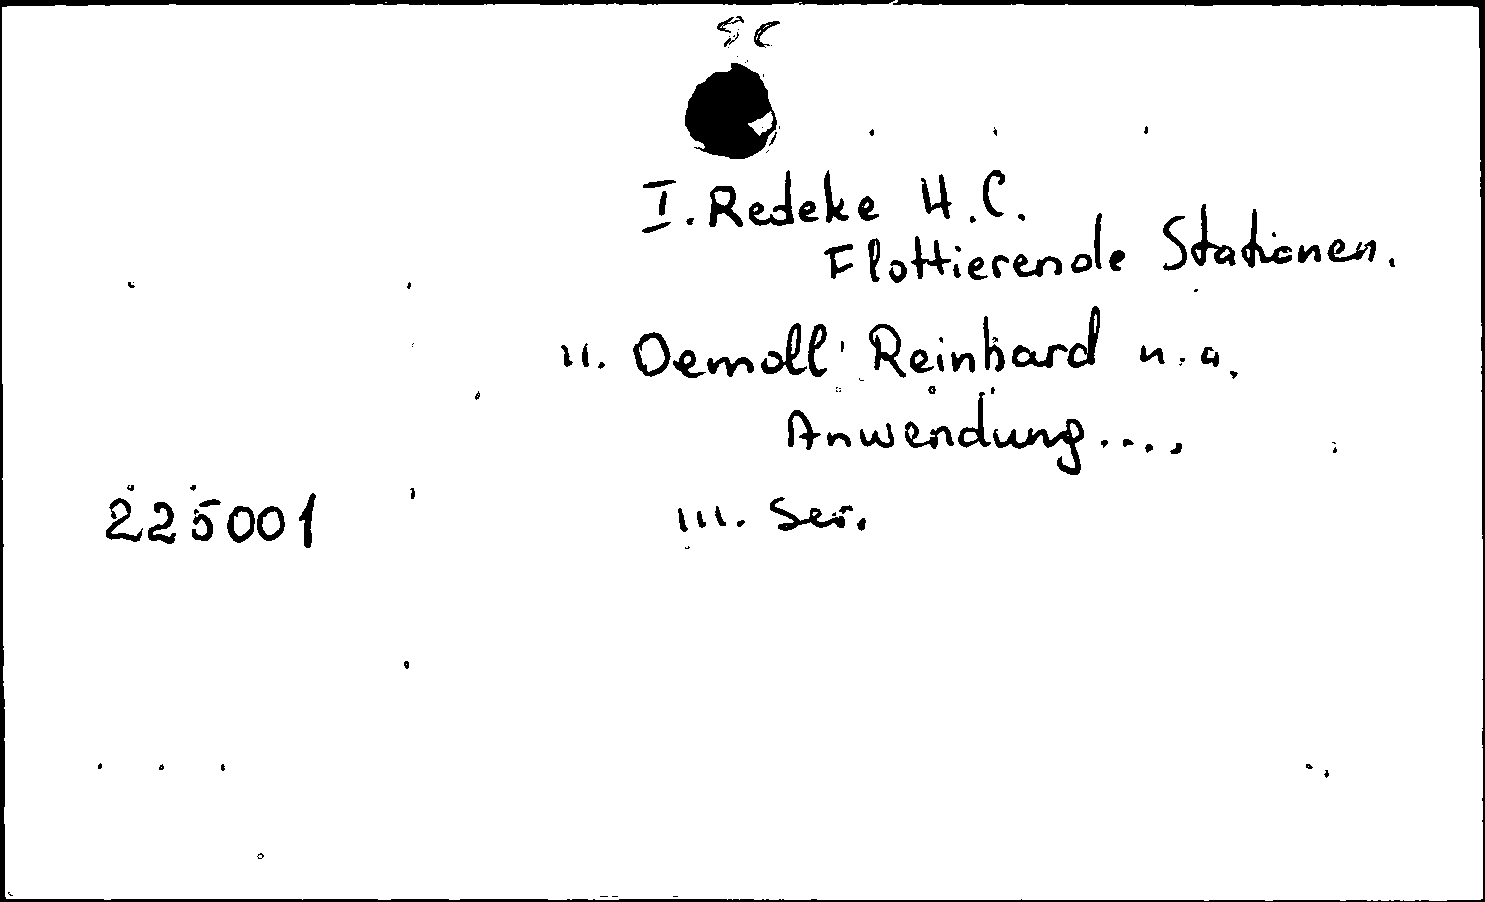 SC
I. Redeke H.C.
Flottierende Stationen.
II. Demoll Reinhard u.a.
Anwendung....
225001 III. Ser.